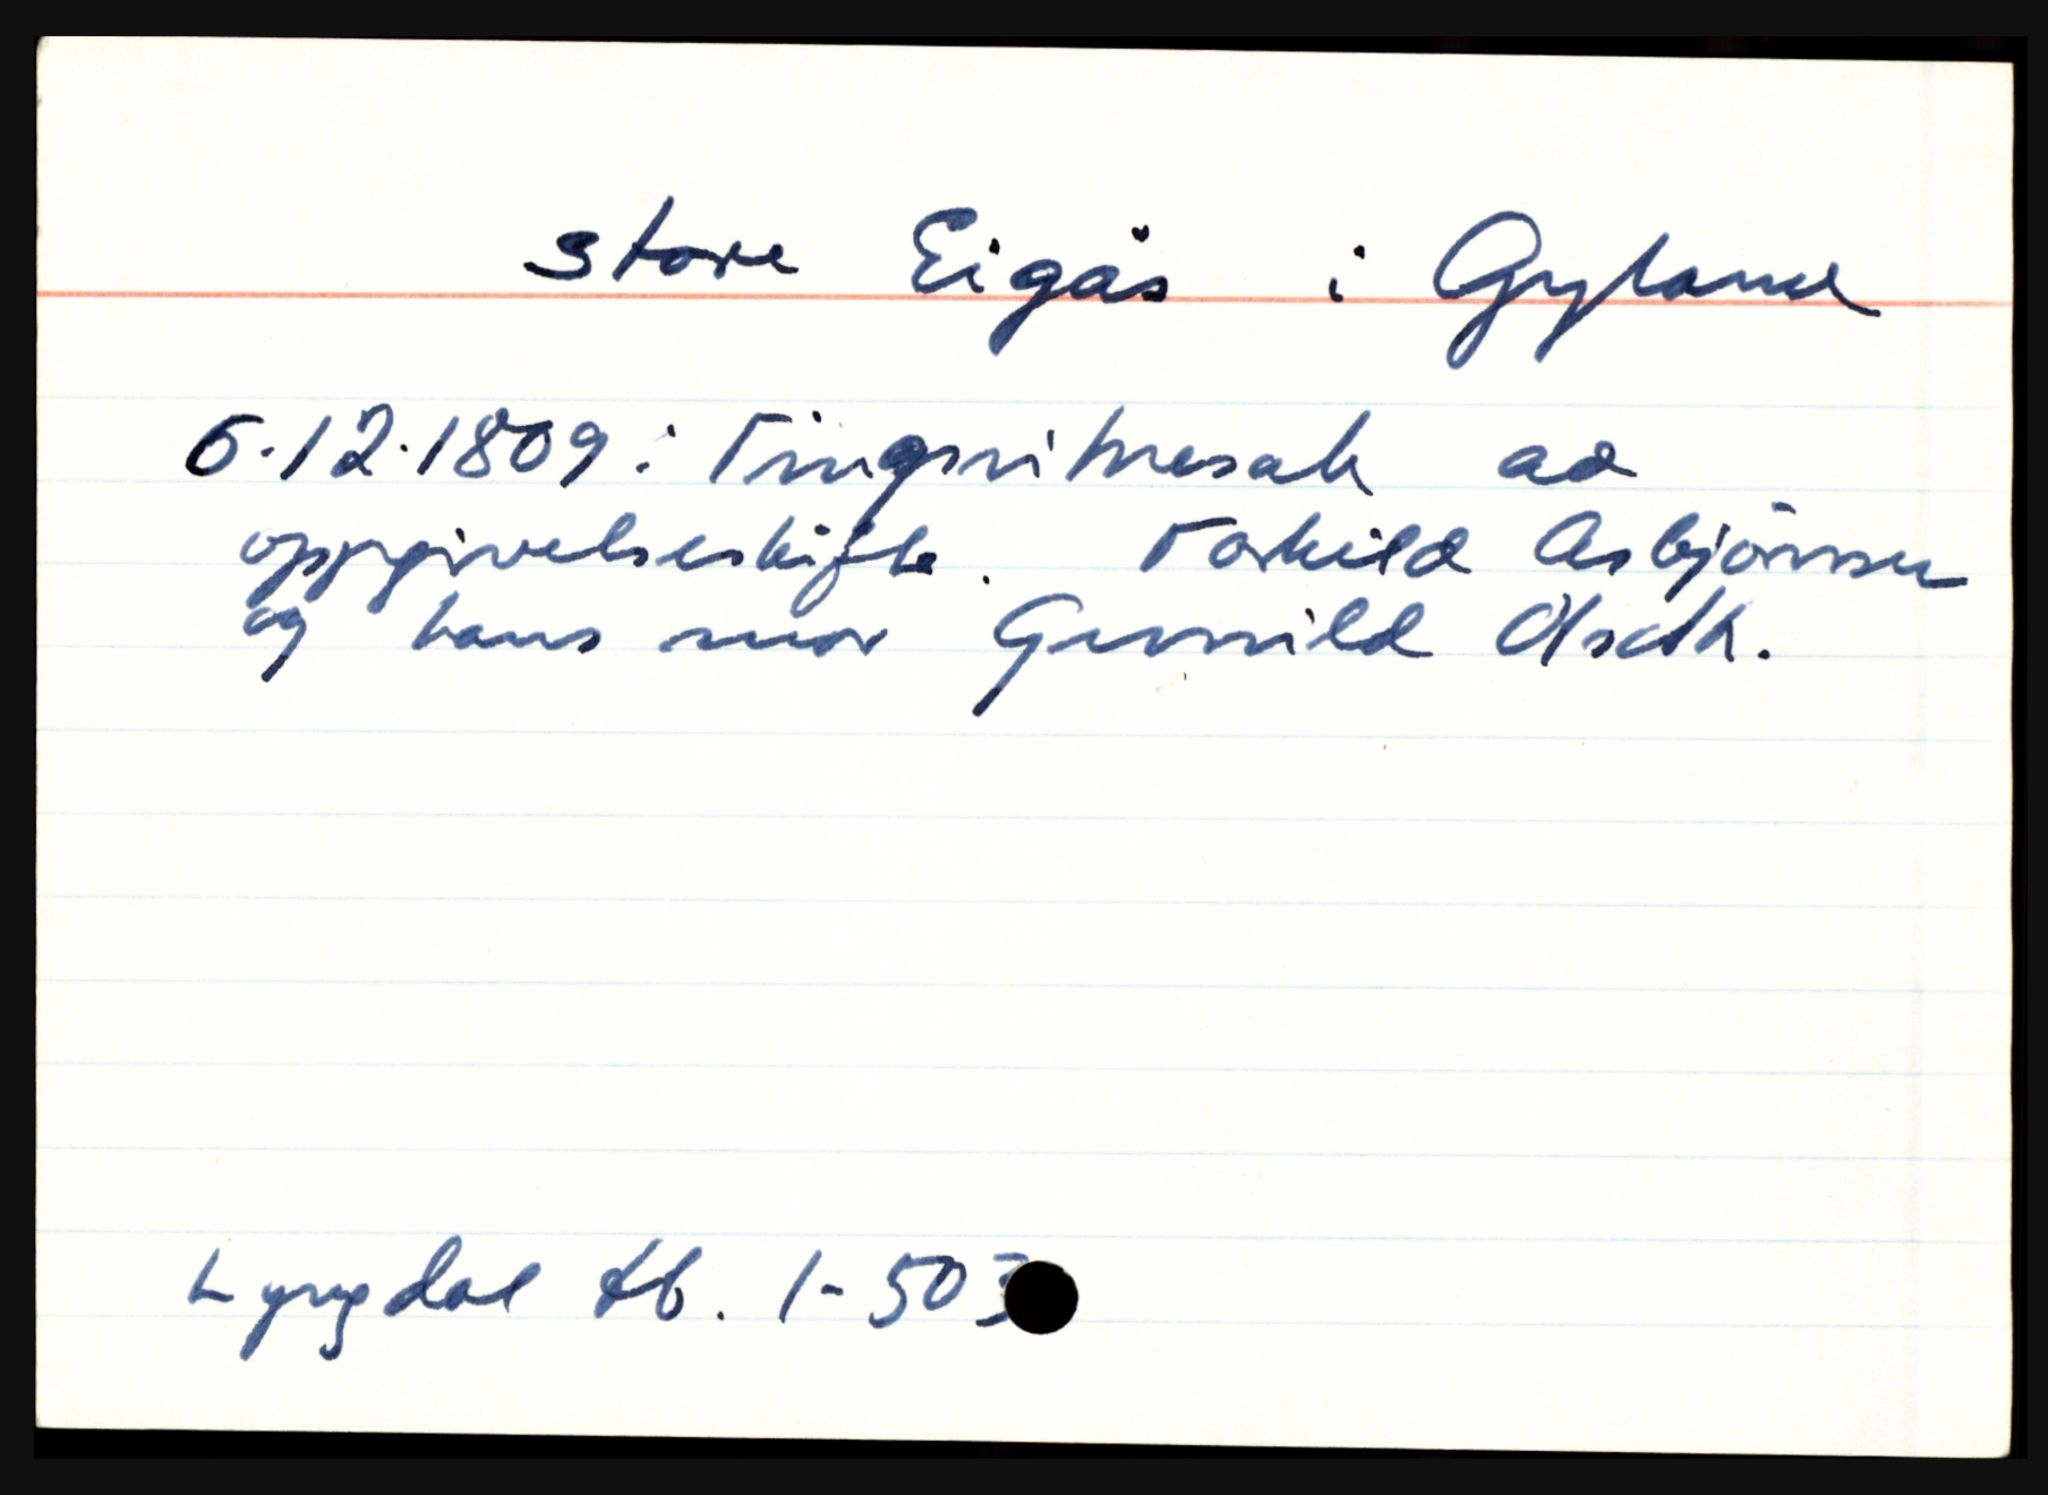 Store Eigås i Gyland
5.12.1809: Tingsvitnesak ad
oppgivelseskifte. Torkild Asbjörnsen
og hans mor Gunvild Olsdtr.
Lyngdal tb. 1-503